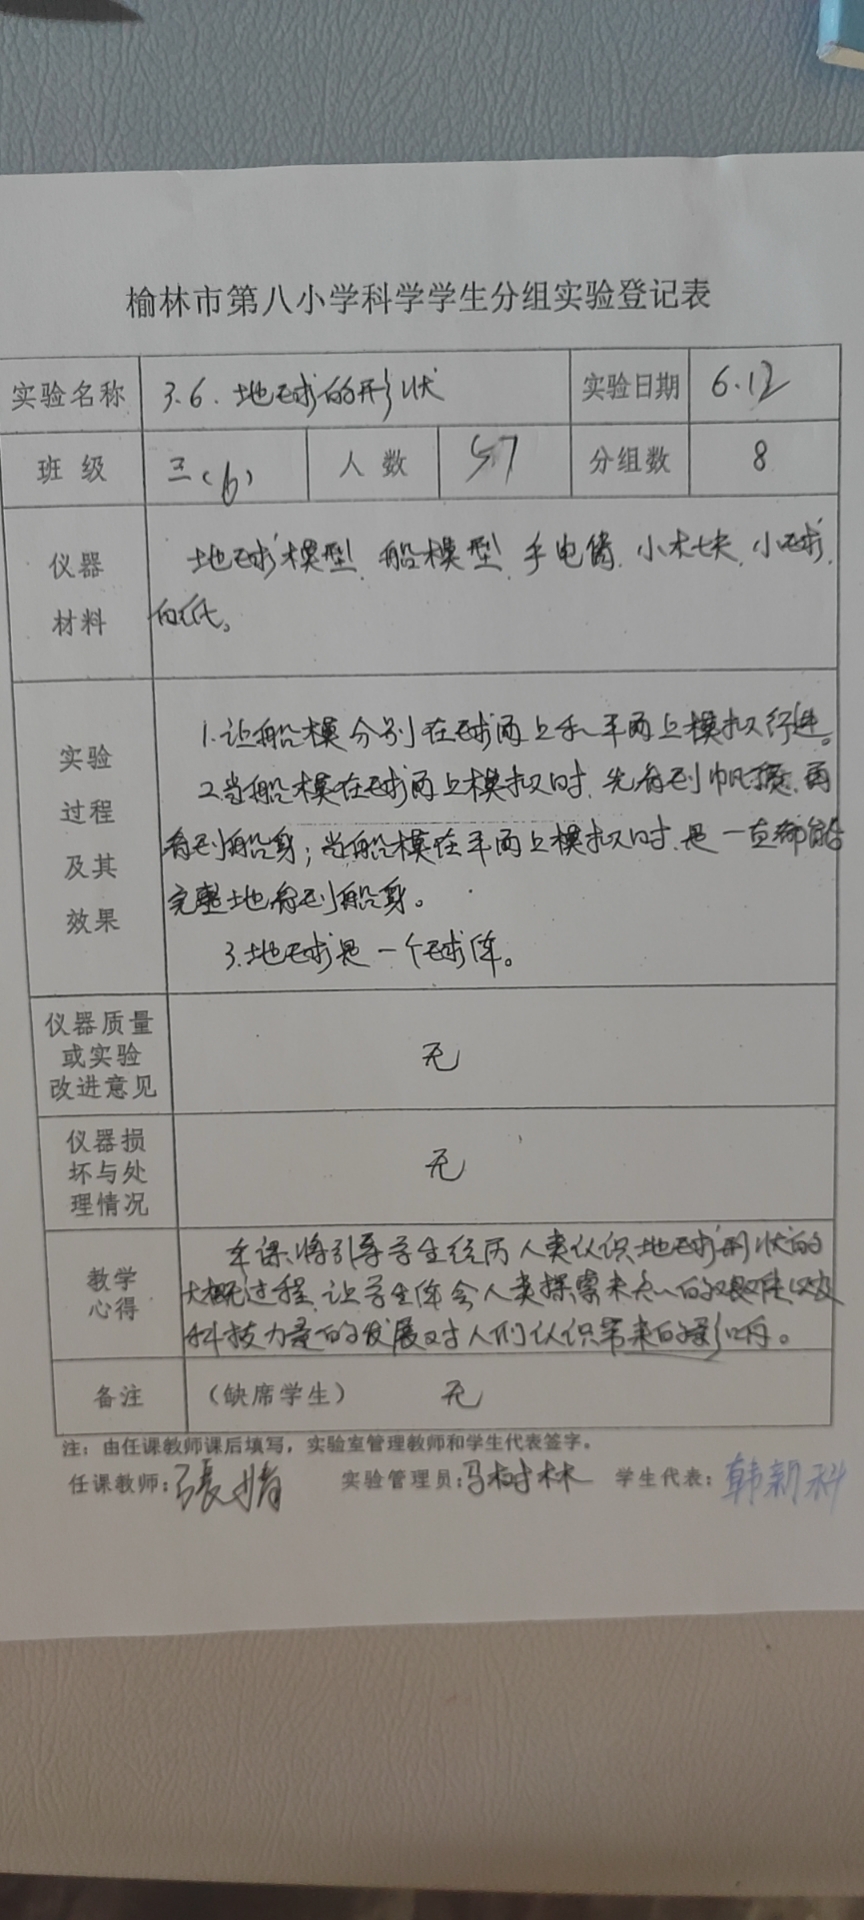 榆林市第八小学科学学生分组实验登记表
实验名称 3.6.地球的形状 实验日期 6.12
班 级 三(6) 人 数 57 分组数 8
仪器
材料
地球模型、船模型、手电筒、小木块、小球、
白纸。
实验
过程
及其
效果
1.让船模分别在球面上和平面上模拟行进。
2.当船模在球面上模拟时,先看到帆顶,再
看到船身;当船模在平面上模拟时,是一直都能
完整地看到船身。
3.地球是一个球体。
仪器质量
或实验
改进意见
无
仪器损
坏与处
理情况
无
教学
心得
本课将引导学生经历人类认识地球形状的
大概过程,让学生体会人类探索未知的艰难以及
科技力量的发展对人们认识带来的影响。
备注 (缺席学生) 无
注:由任课教师课后填写,实验室管理教师和学生代表签字。
任课教师:张婧 实验管理员:马树林 学生代表:韩新科